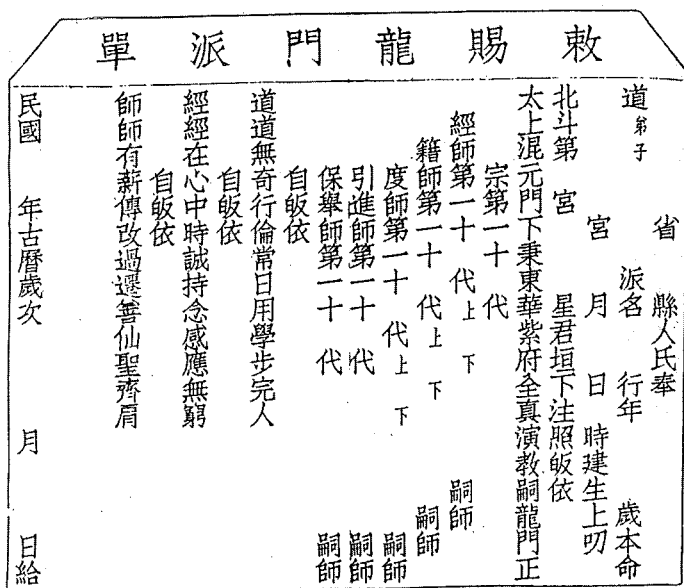 敕賜龍門派單
省 縣人氏奉
道弟子 派名 行年 歲本命
宮 月 日 時建生上叨
北斗第 宮 星君垣下注照皈依
太上混元門下秉東華紫府全真演教嗣龍門正
宗第一十 代
經師第一十 代上 下 嗣師
籍師第一十 代上 下 嗣師
度師第一十 代上 下 嗣師
引進師第一十 代 嗣師
保舉師第一十 代 嗣師
自皈依
道道無奇行倫常日用學步完人
自皈依
經經在心中時誠持念感應無窮
自皈依
師師有薪傳改過遷善仙聖齊肩
民國 年古曆歲次 月 日給